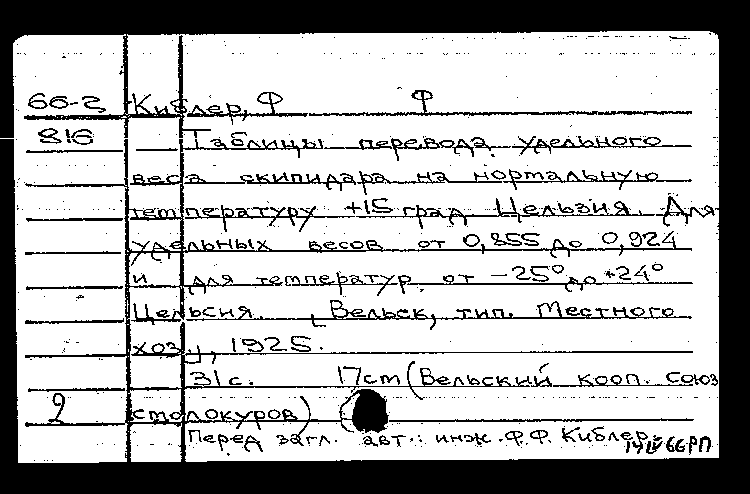 66-2 Киблер, Ф Ф
816 Таблицы перевода удельного
веса скипидара на нормальную
температуру +15 град Цельзия. Для
удельных весов от 0,855 до 0,924
и для температур от -25° до +24°
Цельсия. [Вельск, тип. Местного
хоз-], 1925.
31 с. 17 cm (Вельский кооп. союз
2 столокуров)
Перед загл. авт.: инж. Ф.Ф. Киблер.
66РП